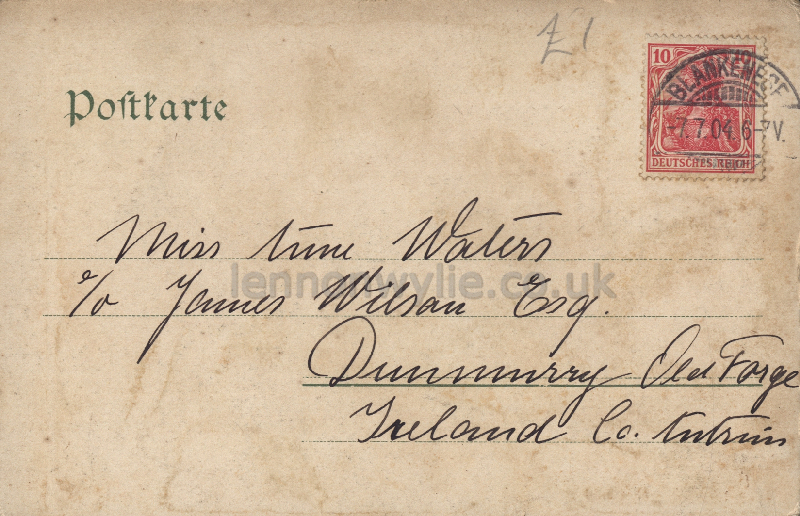 £1
Postkarte
10
BLANKENESE
7.7.04. 6-7V.
DEUTSCHES REICH
Miss
Waters
lennonwylie.co.uk
c/o James Wilson Esq.
Dunmurry Old Forge
Ireland Co. Antrim